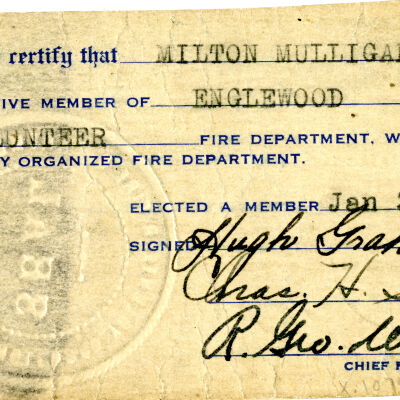 certify that MILTON MULLIGA
IVE MEMBER OF ENGLEWOOD
LUNTEER FIRE DEPARTMENT, W
Y ORGANIZED FIRE DEPARTMENT.
ELECTED A MEMBER Jan
SIGNED Hugh Gra
Chas. H.
R. Geo.
CHIEF